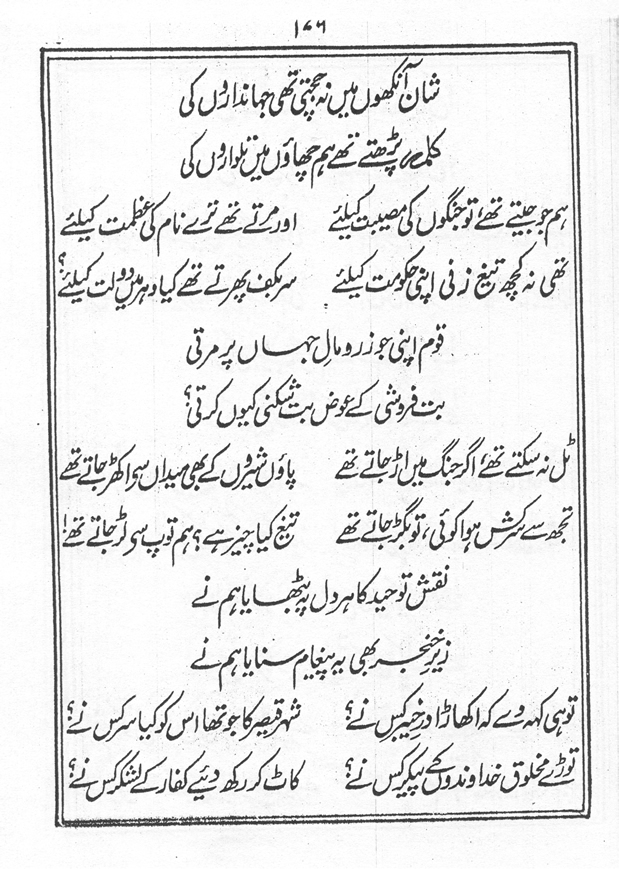 ۱۷۶
شان آنکھوں میں نہ جچتی تھی جہانداروں کی
کلمہ پڑھتے تھے ہم چھاؤں میں تلواروں کی
ہم جو جیتے تھے، تو جنگوں کی مصیبت کیلئے اور مرتے تھے ترے نام کی عظمت کیلئے
تھی نہ کچھ تیغ زنی اپنی حکومت کیلئے سر بکف پھرتے تھے کیا دہر میں دولت کیلئے؟
قوم اپنی جو زر و مالِ جہاں پر مرتی
بت فروشی کے عوض بت شکنی کیوں کرتی؟
ٹل نہ سکتے تھے، اگر جنگ میں اڑ جاتے تھے پاؤں شیروں کے بھی میداں سی اکھڑ جاتے تھے
تجھ سے سرکش ہوا کوئی، تو بگڑ جاتے تھے تیغ کیا چیز ہے؟ ہم توپ سی لڑ جاتے تھے!
نقش توحید کا ہر دل پہ بٹھایا ہم نے
زیرِ خنجر بھی یہ پیغام سنایا ہم نے
تو ہی کہہ دے کہ اکھاڑا درِ خیبر کس نے؟ شہر قیصر کا جو تھا اس کو کیا سر کس نے؟
توڑے مخلوق خداوندوں کے پیکر کس نے؟ کاٹ کر رکھ دئیے کفار کے لشکر کس نے؟